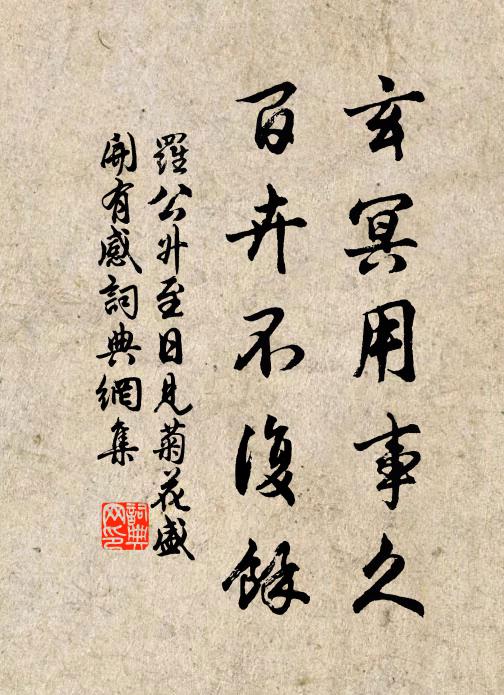 玄冥用事久
百卉不復餘
羅公升至日見菊花盛
開有感詞典網集
詞典
网印